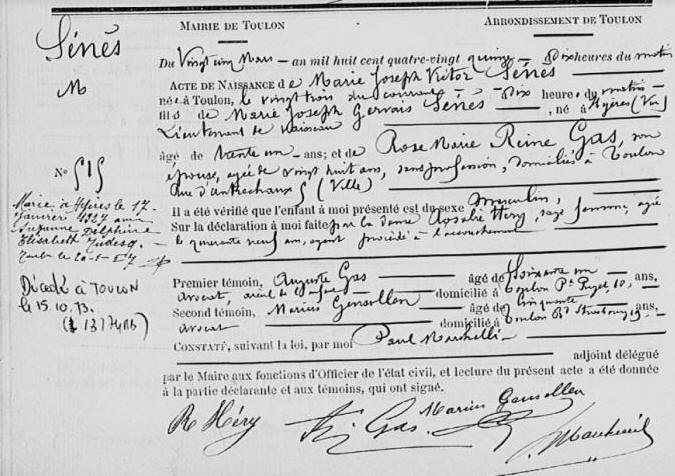 MAIRIE DE TOULON
ARRONDISSEMENT DE TOULON
Sénès
M
N° 515
Marié à Hyères le 17
janvier 1927 avec
Suzanne Delphine
Elisabeth
Décédé à TOULON
le 15.10.73.
Du Vingt cinq Mars — an mil huit cent quatre-vingt quinze — Dix heures du matin
ACTE DE NAISSANCE de Marie Joseph Victor Sénès
né à Toulon, le vingt trois du courant à Dix heures du matin
fils de Marie Joseph Gervais Sénès, né à Hyères (Var)
Lieutenant de Vaisseau
âgé de trente un — ans; et de Rose Marie Reine Gas, son
épouse, agée de vingt huit ans, sans profession, domiciliés à Toulon
Rue d'antrechaux 5 (Ville)
Il a été vérifié que l'enfant à moi présenté est du sexe masculin,
Sur la déclaration à moi faite par la dame Rosalie Héry, sage femme, agée
de quarante neuf ans, ayant procédé à l'accouchement
Premier témoin, Auguste Gas — âgé de Soixante un — ans,
avocat, aieul de l'enfant domicilié à Toulon Pce Puget, 10,
Second témoin, Marius Gensollen — âgé de Cinquante — ans,
avocat — domicilié à Toulon Bd Strasbourg 19 —
CONSTATÉ, suivant la loi, par moi Paul
adjoint délégué
par le Maire aux fonctions d'Officier de l'état civil, et lecture du présent acte a été donnée
à la partie déclarante et aux témoins, qui ont signé.
R Héry
Gas
Marius Gensollen